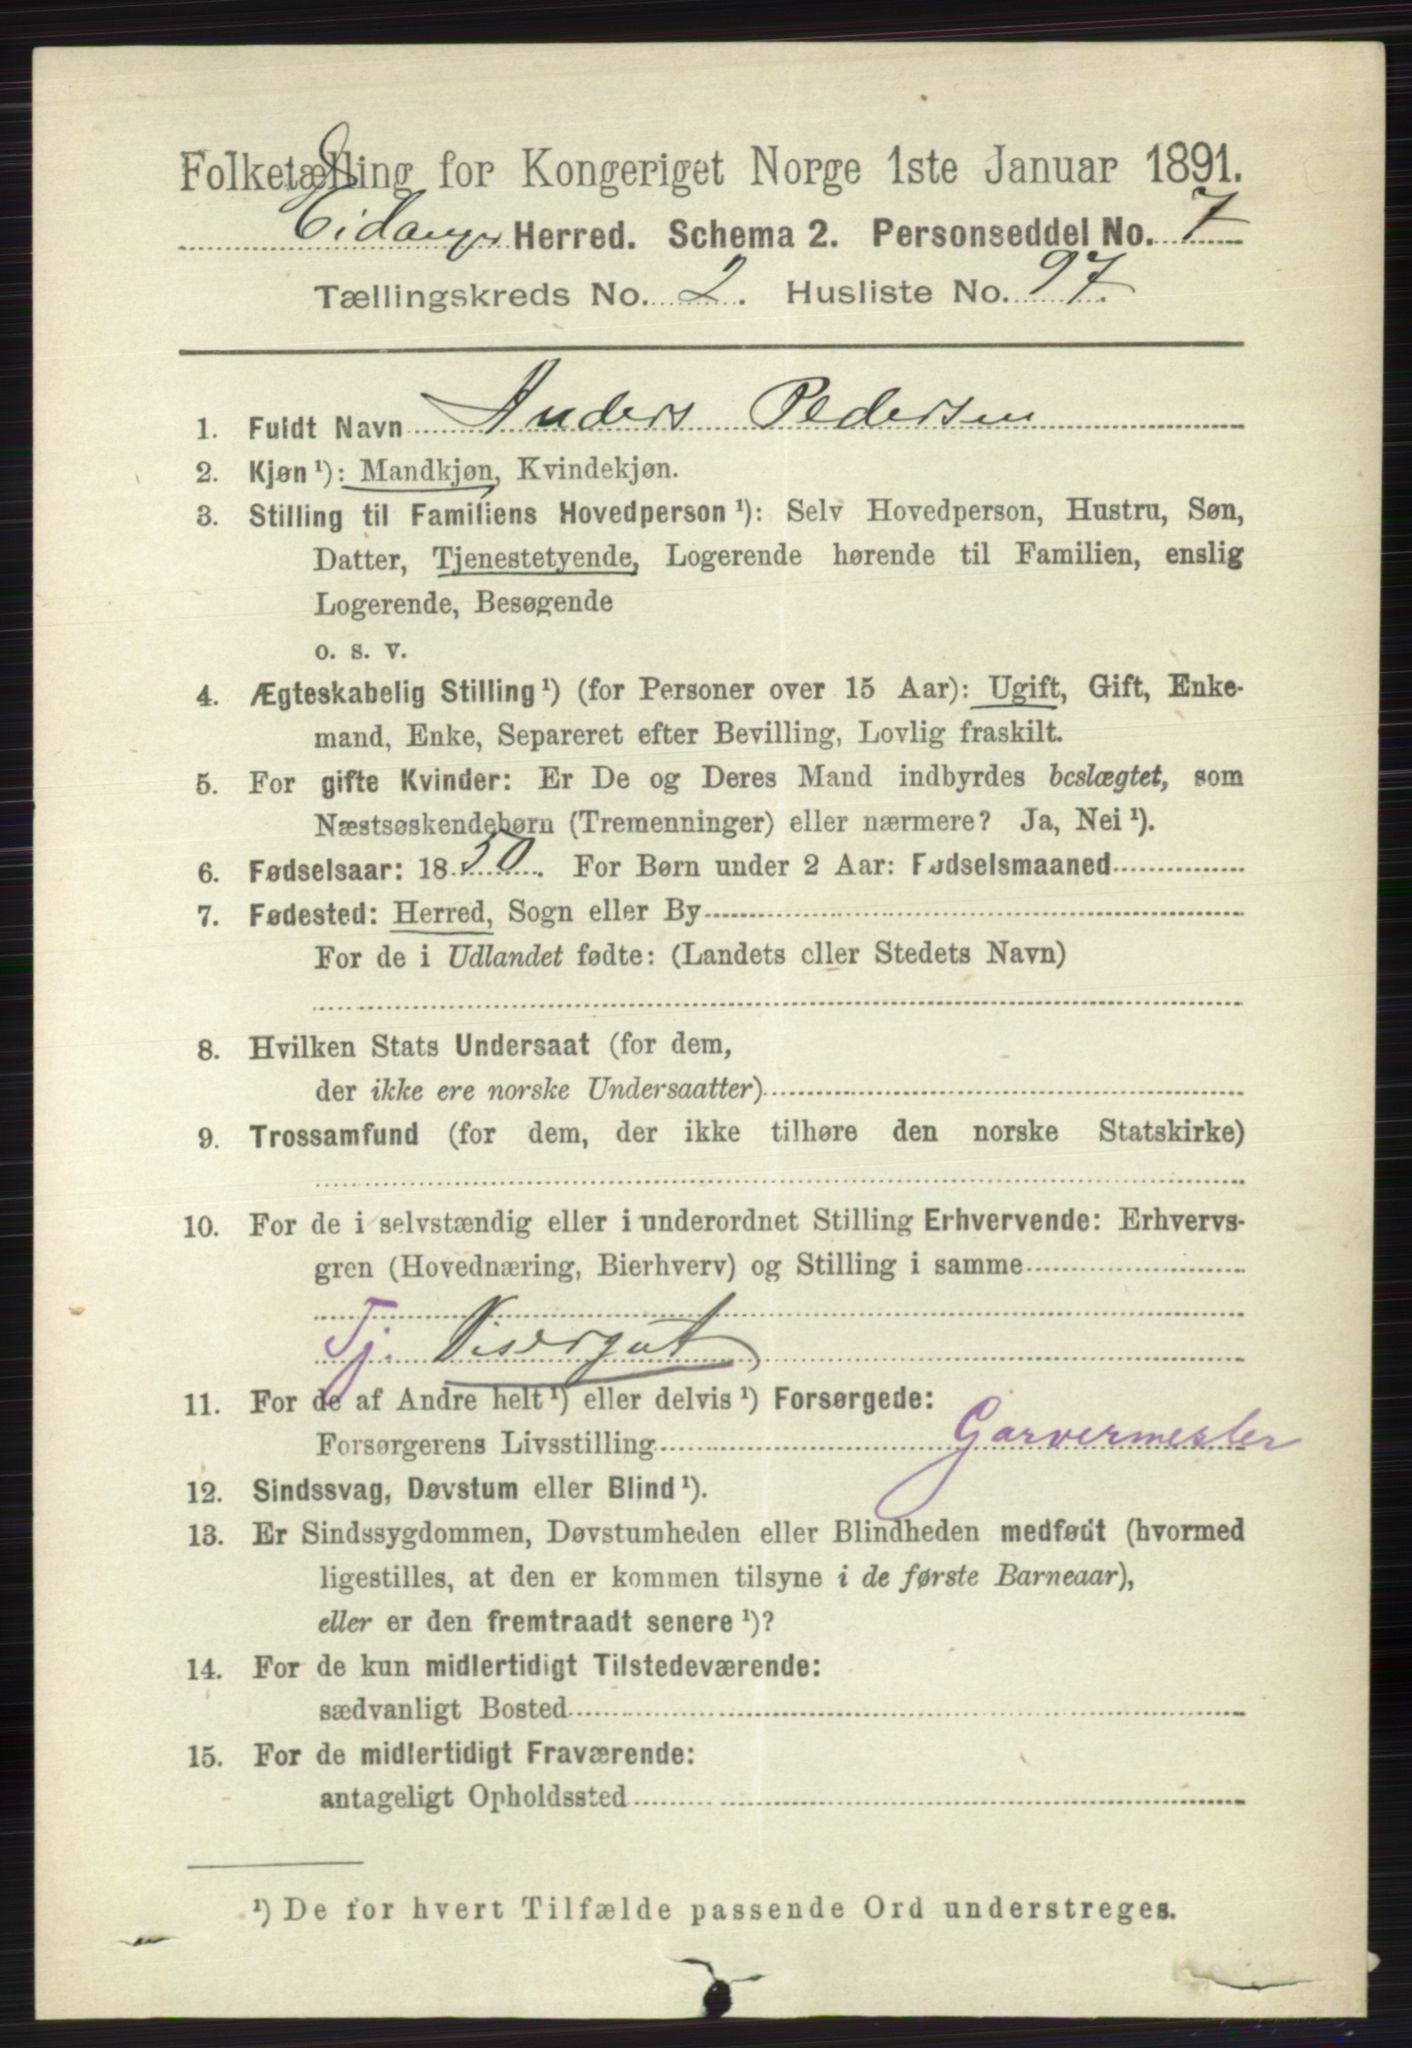 Folketælling for Kongeriget Norge 1ste Januar 1891.
Eidanger Herred. Schema 2. Personseddel No. 7
Tællingskreds No. 2. Husliste No. 97.
1. Fuldt Navn Anders Pedersen
2. Kjøn ¹): Mandkjøn, Kvindekjøn.
3. Stilling til Familiens Hovedperson ¹): Selv Hovedperson, Hustru, Søn,
Datter, Tjenestetyende, Logerende hørende til Familien, enslig
Logerende, Besøgende
o. s. v.
4. Ægteskabelig Stilling ¹) (for Personer over 15 Aar): Ugift, Gift, Enke-
mand, Enke, Separeret efter Bevilling, Lovlig fraskilt.
5. For gifte Kvinder: Er De og Deres Mand indbyrdes beslægtet, som
Næstsøskendebørn (Tremenninger) eller nærmere? Ja, Nei ¹).
6. Fødselsaar: 1850. For Børn under 2 Aar: Fødselsmaaned
7. Fødested: Herred, Sogn eller By
For de i Udlandet fødte: (Landets eller Stedets Navn)
8. Hvilken Stats Undersaat (for dem,
der ikke ere norske Undersaatter)
9. Trossamfund (for dem, der ikke tilhøre den norske Statskirke)
10. For de i selvstændig eller i underordnet Stilling Erhvervende: Erhvervs-
gren (Hovednæring, Bierhverv) og Stilling i samme
Tj. Visergut
11. For de af Andre helt ¹) eller delvis ¹) Forsørgede:
Forsørgerens Livsstilling Garvermester
12. Sindssvag, Døvstum eller Blind ¹).
13. Er Sindssygdommen, Døvstumheden eller Blindheden medfødt (hvormed
ligestilles, at den er kommen tilsyne i de første Barneaar),
eller er den fremtraadt senere ¹)?
14. For de kun midlertidigt Tilstedeværende:
sædvanligt Bosted
15. For de midlertidigt Fraværende:
antageligt Opholdssted
¹) De for hvert Tilfælde passende Ord understreges.